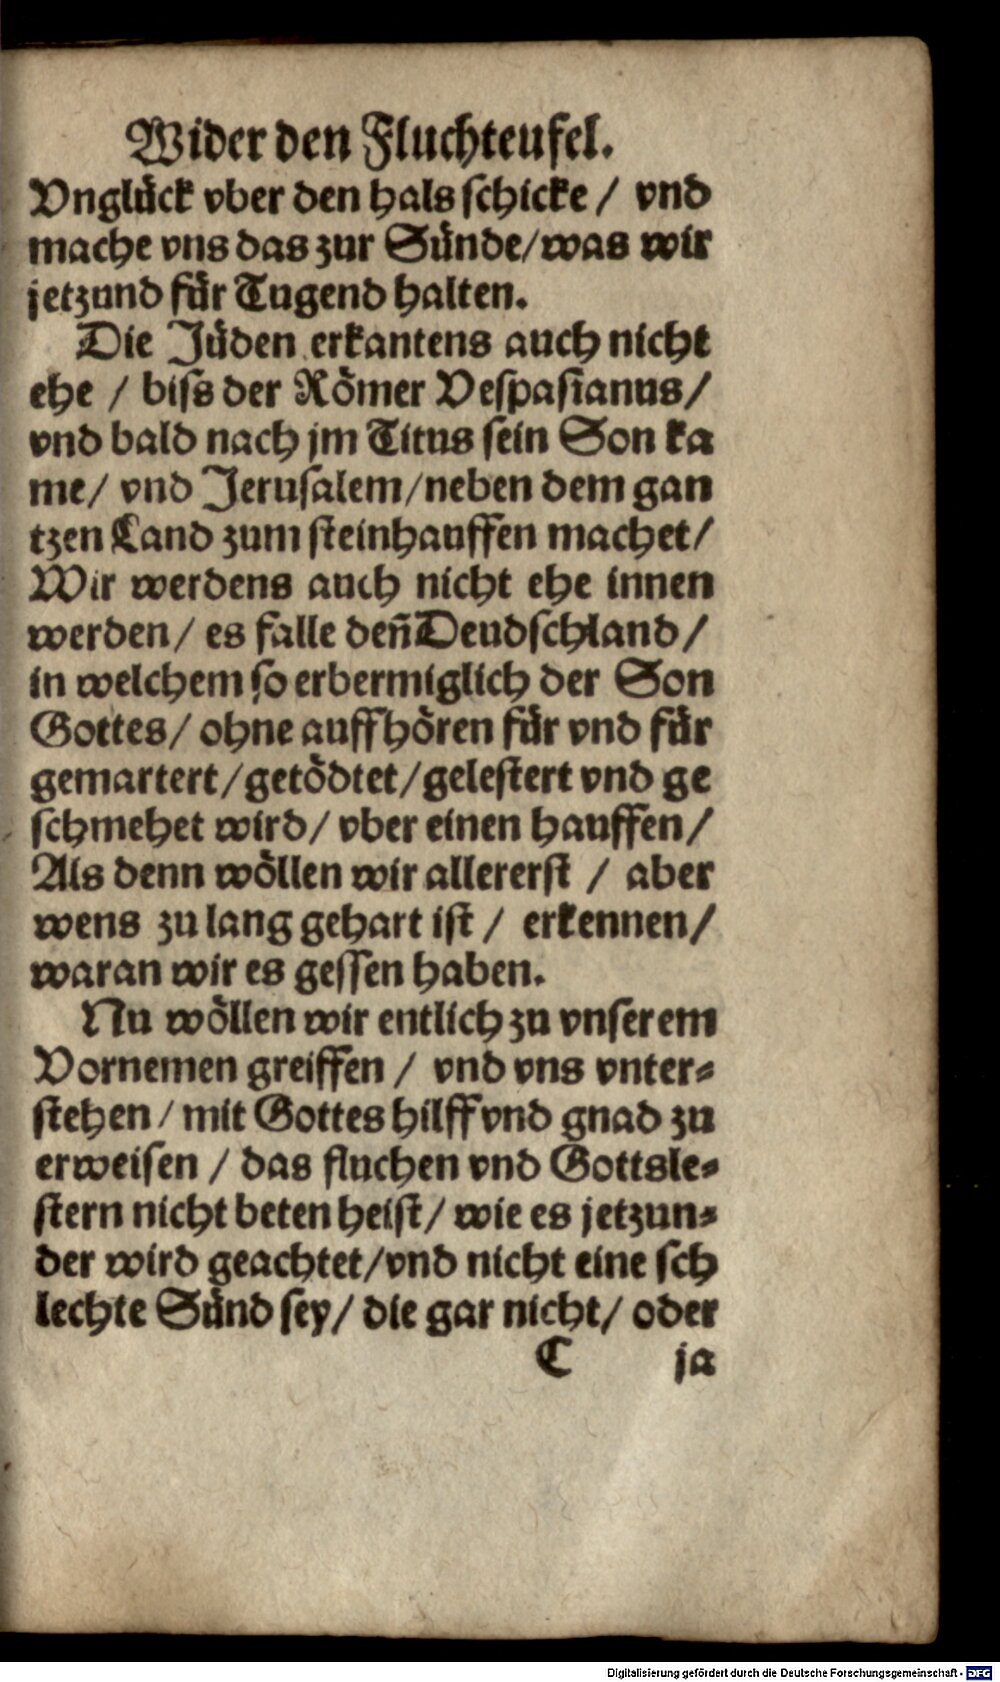 Wider den Fluchteufel.
Vnglück vber den hals schicke / vnd
mache vns das zur Sünde/was wir
jetzund für Tugend halten.
Die Jüden erkantens auch nicht
ehe / biss der Römer Vespasianus/
vnd bald nach jm Titus sein Son ka
me/ vnd Jerusalem/neben dem gan
tzen Land zum steinhauffen machet/
Wir werdens auch nicht ehe innen
werden/ es falle deñ Deudschland/
in welchem so erbermiglich der Son
Gottes/ ohne auffhören für vnd für
gemartert/getödtet/gelestert vnd ge
schmehet wird/ vber einen hauffen/
Als denn wöllen wir allererst / aber
wens zu lang gehart ist / erkennen/
waran wir es gessen haben.
Nu wöllen wir entlich zu vnserem
Vornemen greiffen / vnd vns vnter⸗
stehen/ mit Gottes hilff vnd gnad zu
erweisen / das fluchen vnd Gottsle⸗
stern nicht beten heist/ wie es jetzun⸗
der wird geachtet/vnd nicht eine sch
lechte Sünd sey/ die gar nicht/ oder
C ja
Digitalisierung gefördert durch die Deutsche Forschungsgemeinschaft - DFG